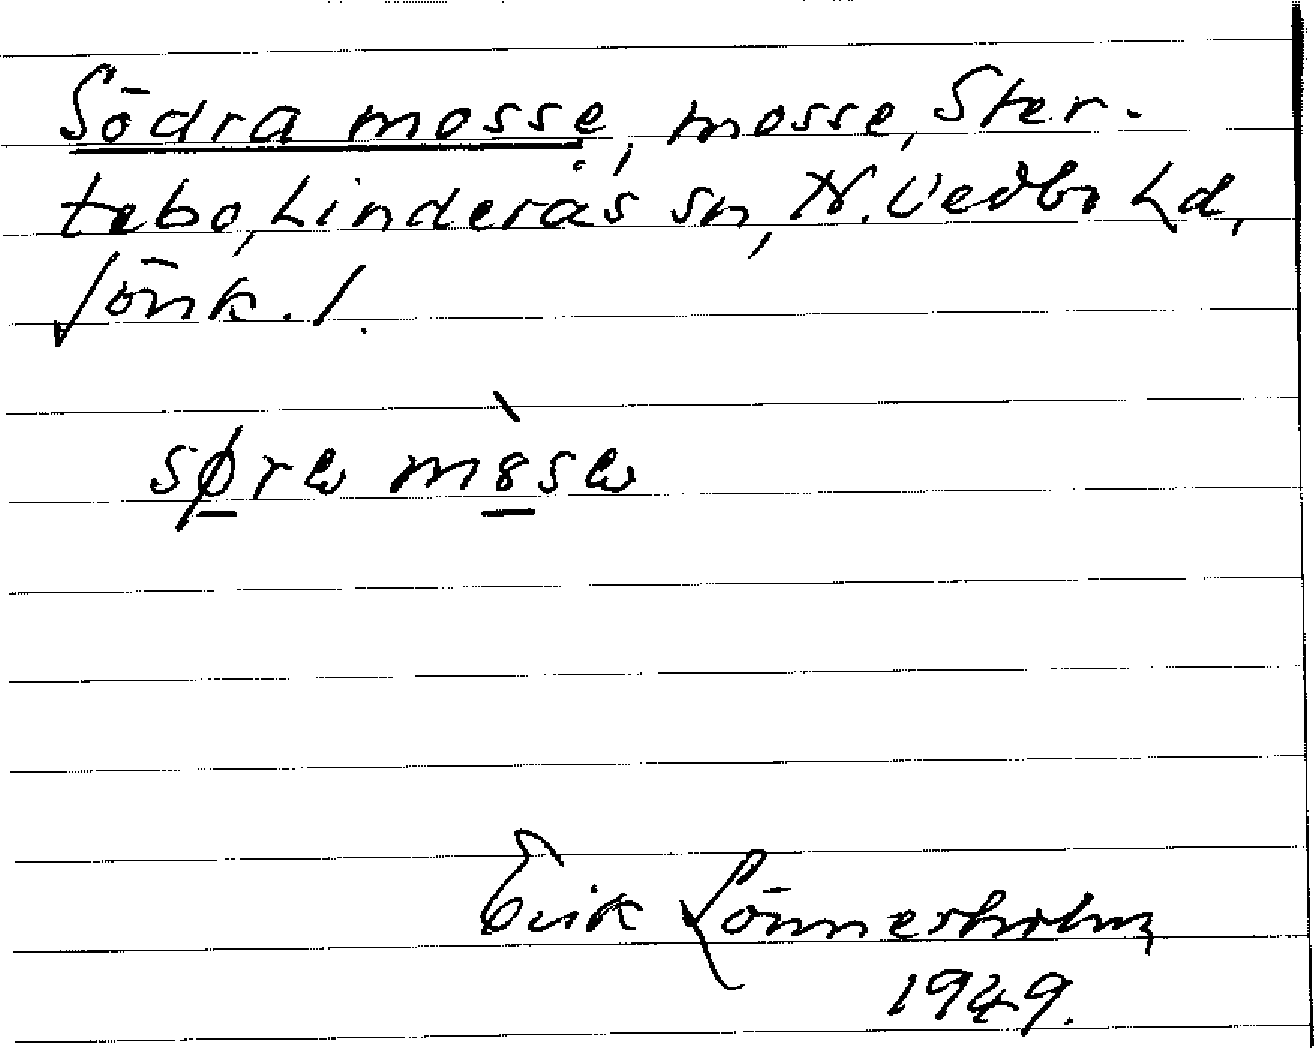 Södra mosse, mosse, Ster-
tebo, Linderås sn, N. Vedbo hd,
Jönk. l.
Erik Lönnerholm
1949.